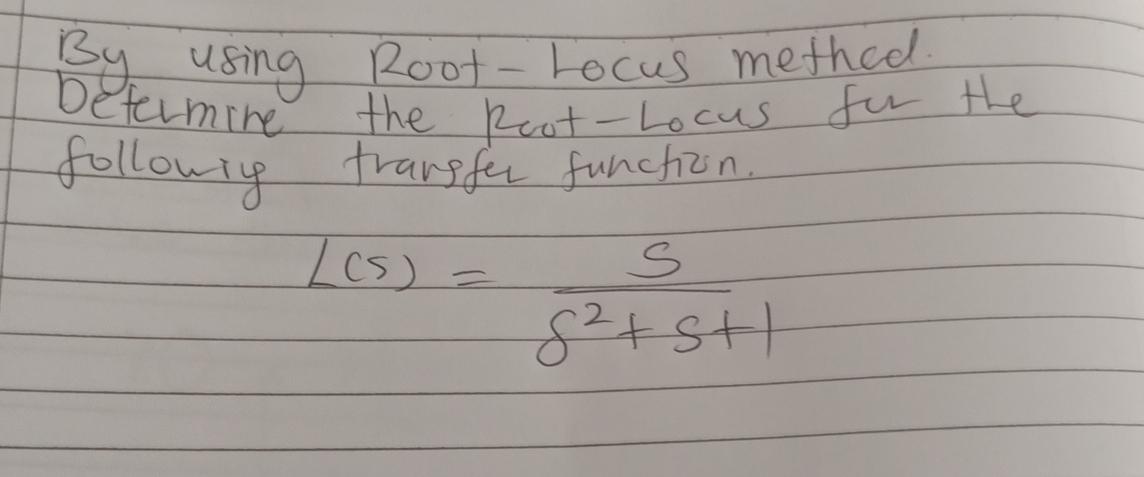 By using Root-Locus method.
Determine the Root-Locus for the
following transfer function.
L(s) = s / s²+s+1